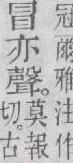 冠爾雅注作
冒亦聲。
莫報
切。古